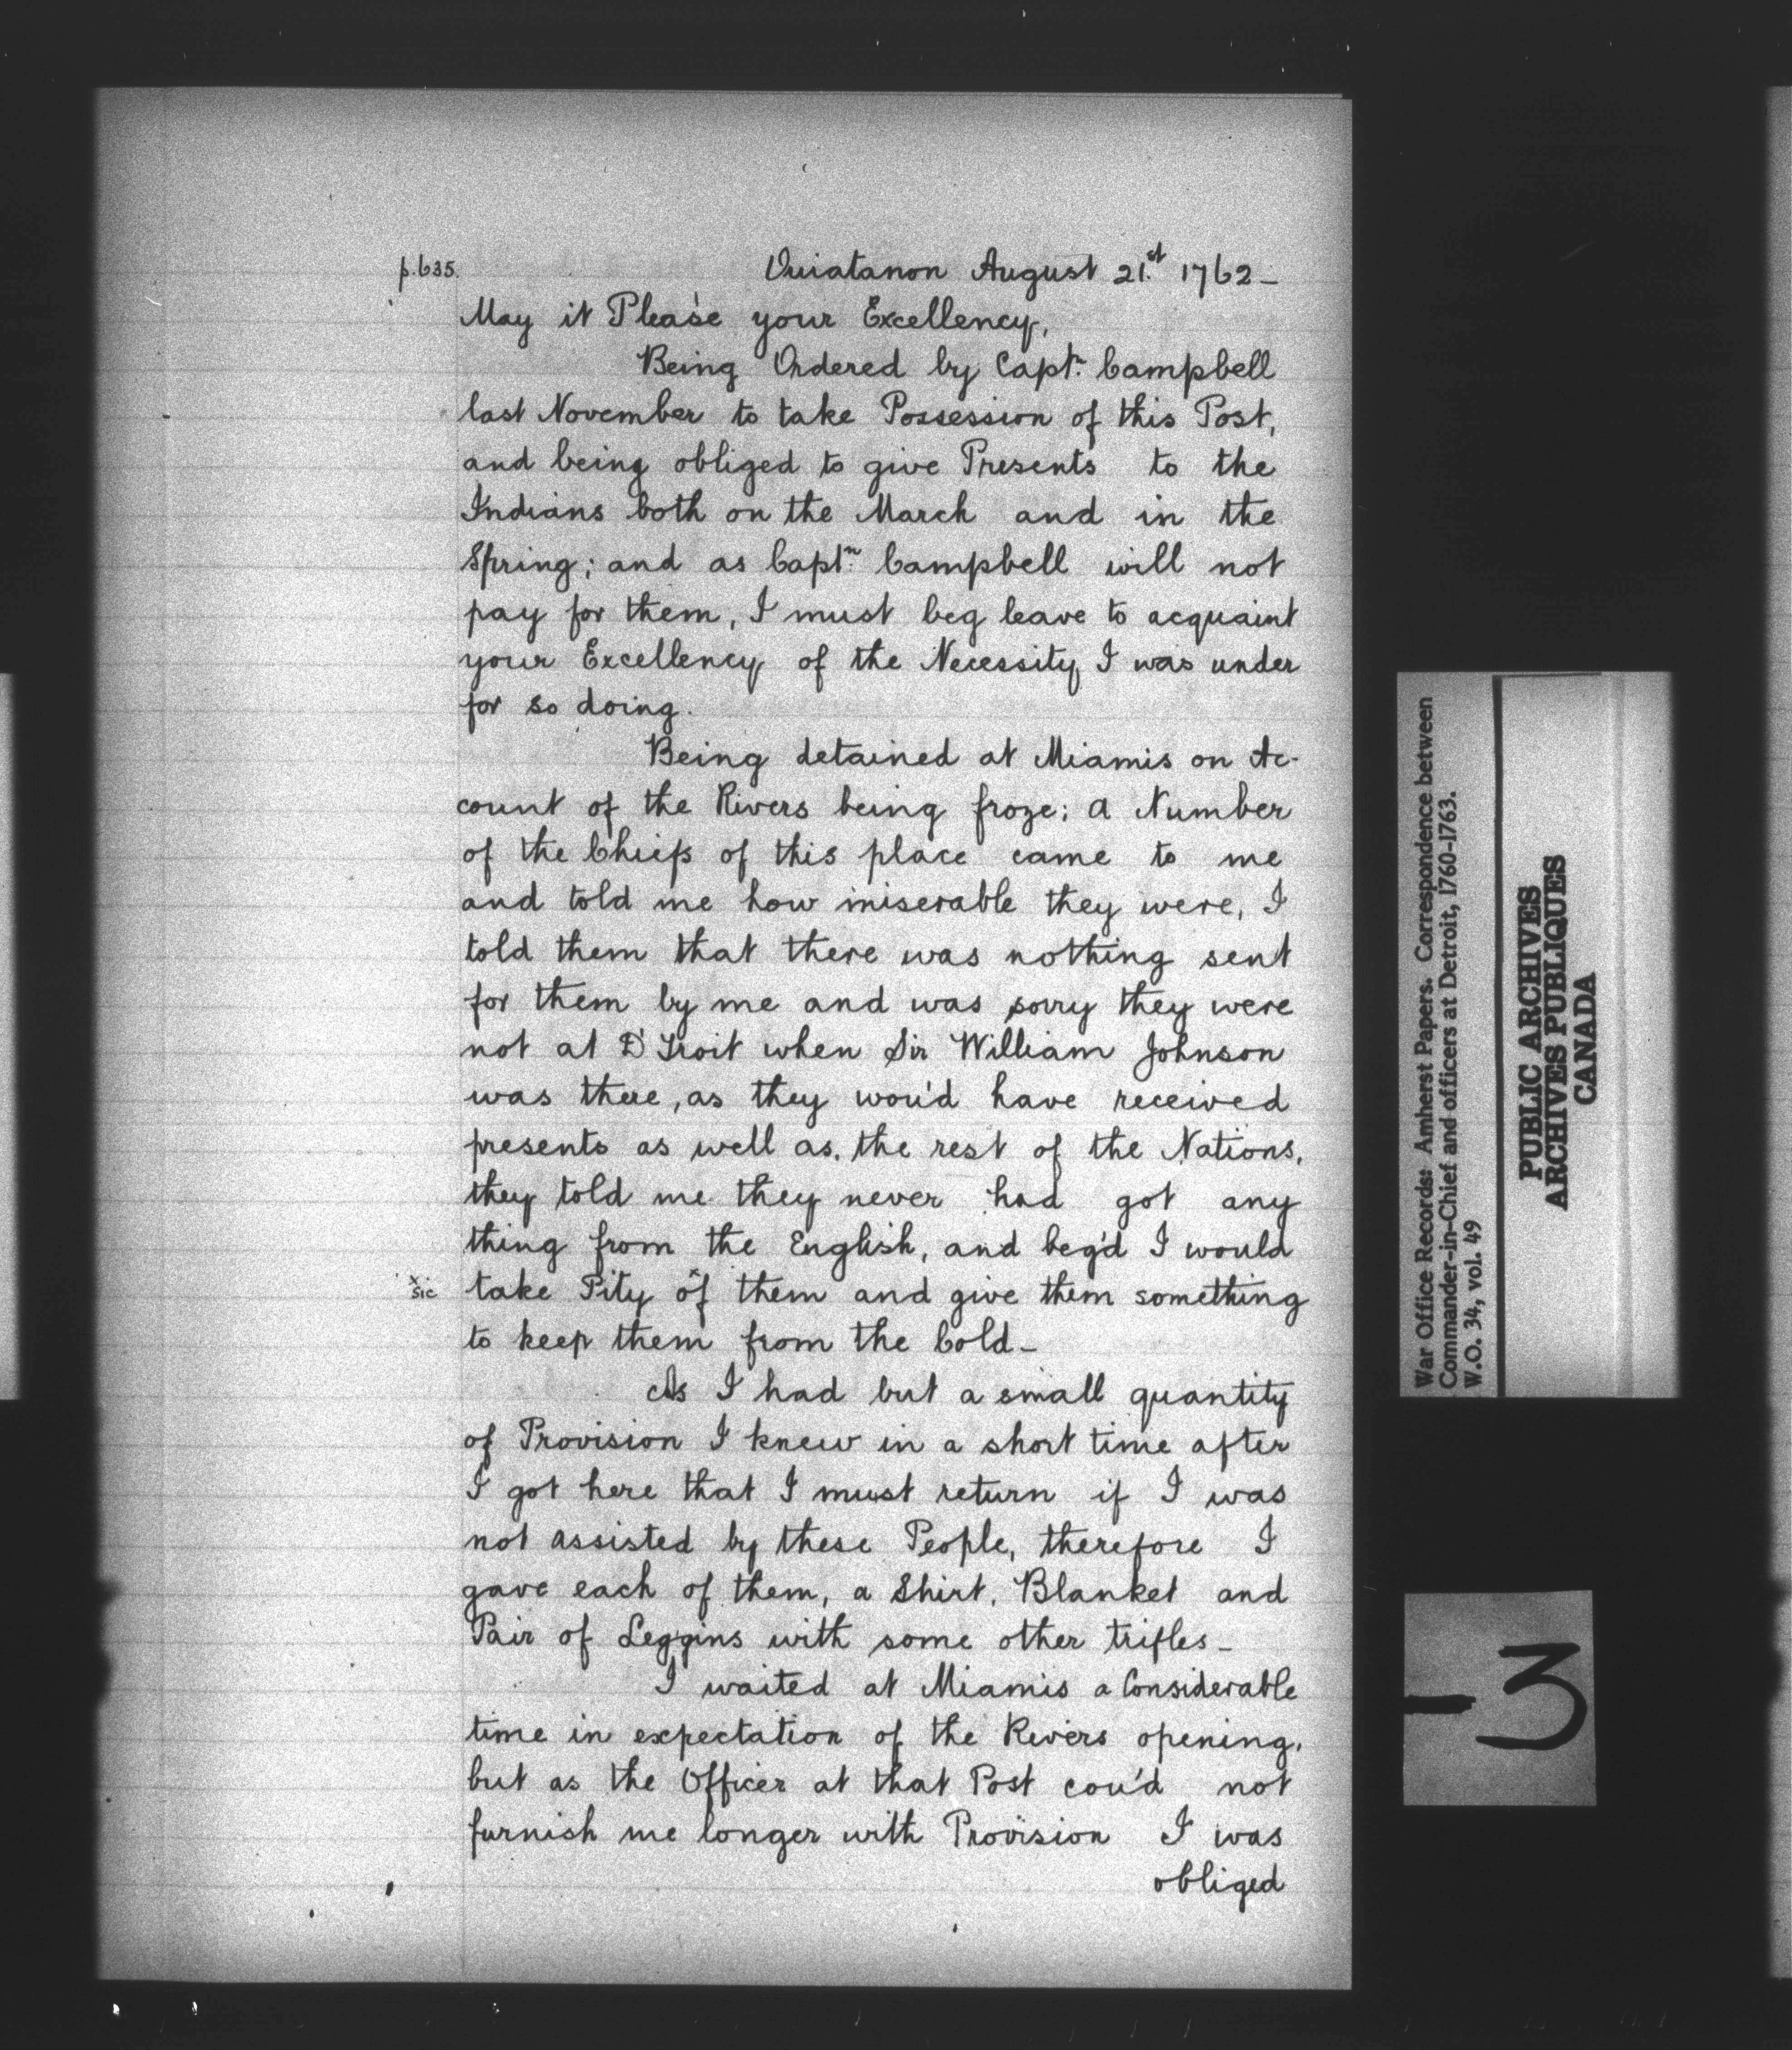 p.635.
Ouiatanon August 21.st 1762_
May it Please your Excellency,
Being Ordered by Captn. Campbell
last November to take Possession of this Post,
and being obliged to give Presents to the
Indians both on the March and in the
Spring; and as Captn. Campbell will not
pay for them, I must beg leave to acquaint
your Excellency of the Necessity I was under
for so doing.
Being detained at Miamis on Ac-
count of the Rivers being froze; a Number
of the Chiefs of this place came to me
and told me how miserable they were, I
told them that there was nothing sent
for them by me and was sorry they were
not at D'Troit when Sir William Johnson
was there, as they wou'd have received
presents as well as, the rest of the Nations,
they told me they never had got any
thing from the English, and beg'd I would
x sic
take Pity of x them and give them something
to keep them from the Cold_
As I had but a small quantity
of Provision I knew in a short time after
I got here that I must return if I was
not assisted by these People, therefore I
gave each of them, a Shirt, Blanket and
Pair of Leggins with some other trifles_
I waited at Miamis a Considerable
time in expectation of the Rivers opening,
but as the Officer at that Post cou'd not
furnish me longer with Provision I was
obliged
War Office Records: Amherst Papers. Correspondence between
Commander-in-Chief and officers at Detroit, 1760-1763.
W.O. 34, vol. 49
PUBLIC ARCHIVES
ARCHIVES PUBLIQUES
CANADA
-3